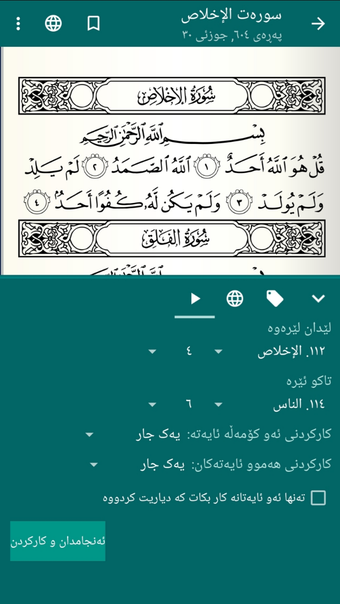 سورەت الإخلاص
پەڕەی ٦٠٤, جوزئی ٣٠
سُورَةُ الإِخْلَاصِ
بِسْمِ ٱللَّهِ ٱلرَّحْمَٰنِ ٱلرَّحِيمِ
قُلْ هُوَ ٱللَّهُ أَحَدٌ ١ ٱللَّهُ ٱلصَّمَدُ ٢ لَمْ يَلِدْ
وَلَمْ يُولَدْ ٣ وَلَمْ يَكُن لَّهُۥ كُفُوًا أَحَدٌۢ ٤
سُورَةُ الفَلَقِ
لێدان لێرەوە
١١٢. الإخلاص ٤
تاکو ئێرە
١١٤. الناس ٦
کارکردنی ئەو کۆمەڵە ئایەتە: یەک جار
کارکردنی هەموو ئایەتەکان: یەک جار
تەنها ئەو ئایەتانە کار بکات کە دیاریت کردووە
ئەنجامدان و کارکردن